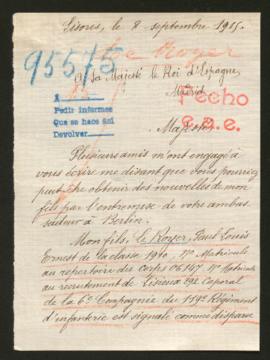 Lisores, le 8 septembre 1915.
95575
Le Royer
A Sa Majesté le Roi d'Espagne,
Madrid
A
Pedir informes
Que se hace así
Devolver
Fecho
Majesté,
Plusieurs amis m'ont engagé à
vous écrire me disant que vous pourriez
peut être obtenir des nouvelles de mon
fils par l'entremise de votre ambas-
sadeur à Berlin.
Mon fils, Le Royer, Paul Louis
Ernest de la classe 1910, No Matricule
au repertoire des Corps 06147 No Matricule
au recrutement de Lisieux 892 Caporal
de la 6e Compagnie du 119e Régiment
d'infanterie est signalé comme disparu